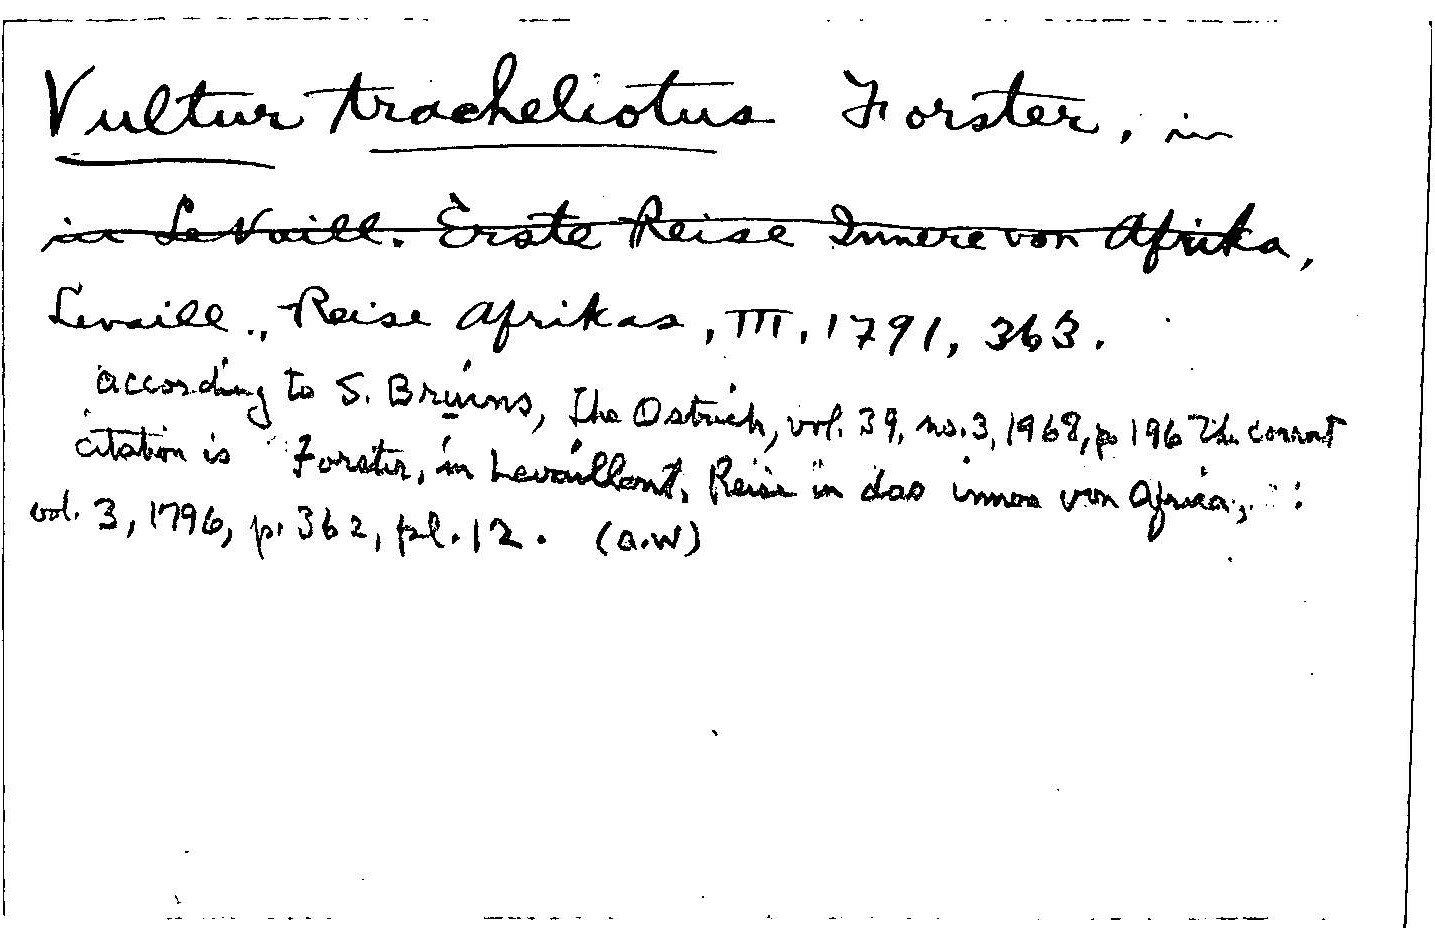 Vultur tracheliotus Forster, in
in LeVaill. Erste Reise Innere von Afrika,
Levaill., Reise Afrikas, III, 1791, 363.
according to S. Bruins, The Ostrich, vol. 39, no. 3, 1968, p. 196 The correct
citation is "Forster, in Levaillant, Reise in das innere von Africa,":
vol. 3, 1796, p. 362, pl. 12. (A.W)